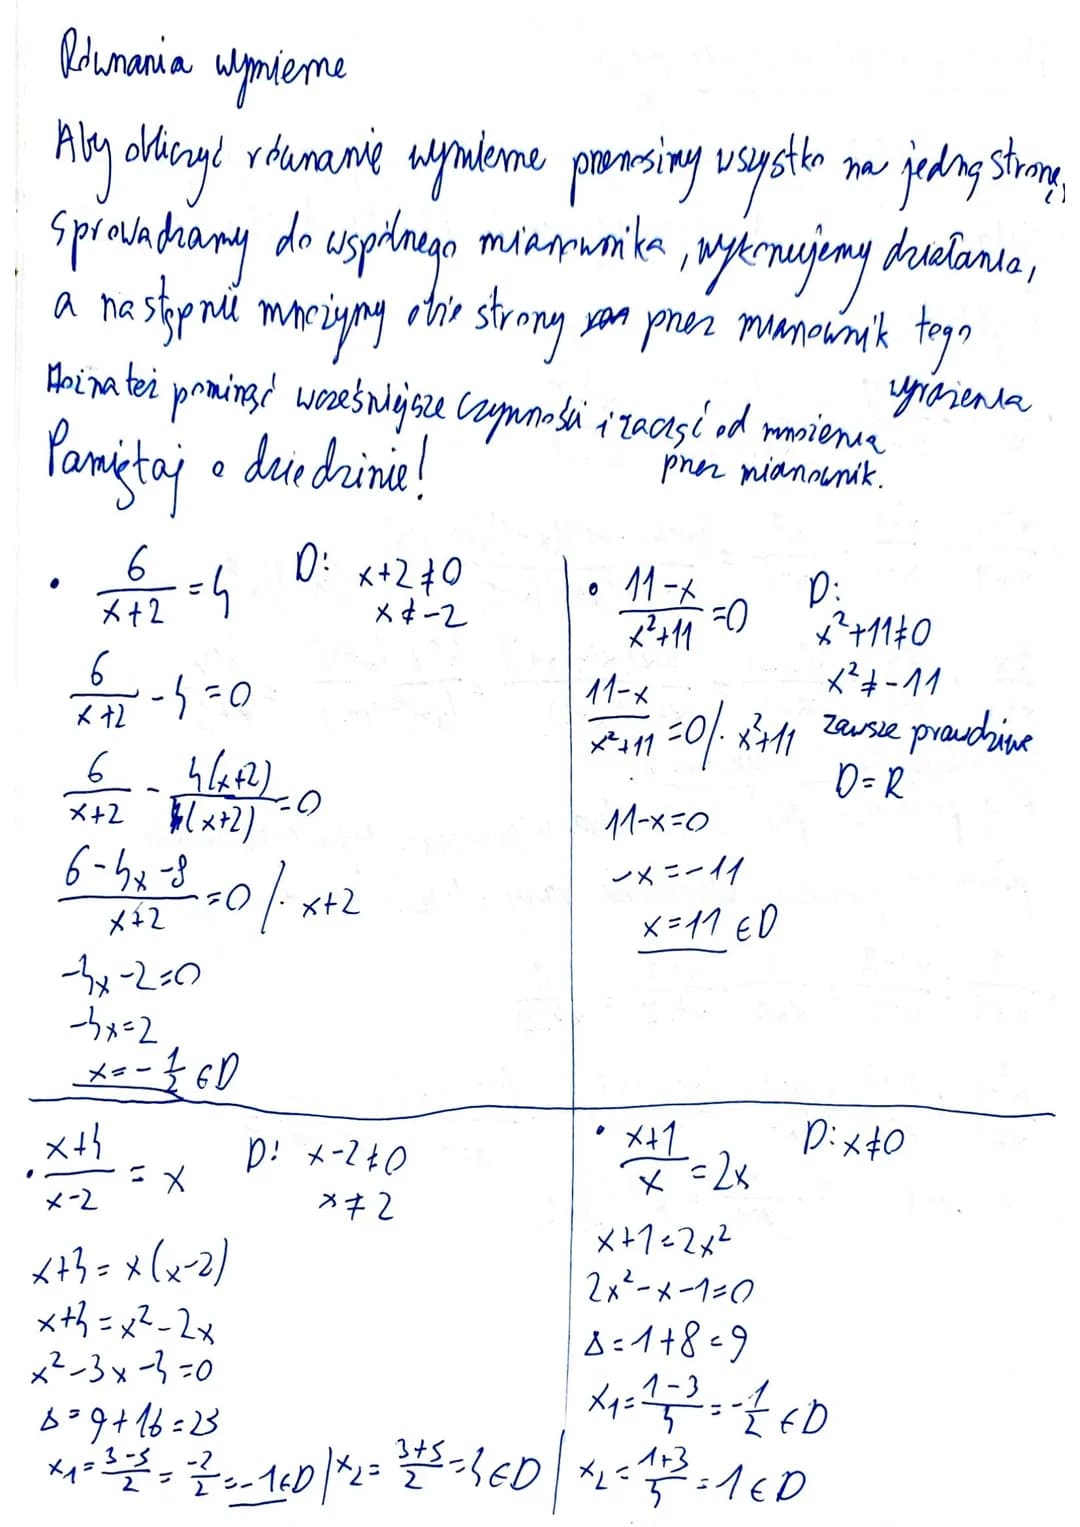 Równania wymierne
Aby obliczyć równanie wymierne przenosimy wszystko na jedną stronę,
sprowadzamy do wspólnego mianownika, wykonujemy działania,
a następnie mnożymy obie strony przez mianownik tego
wyrażenia
Można też pominąć wcześniejsze czynności i zacząć od mnożenia
przez mianownik.
Pamiętaj o dziedzinie!
• 6/(x+2) = 4 D: x+2≠0
x≠-2
6/(x+2) - 4 = 0
6/(x+2) - 4(x+2)/(x+2) = 0
(6-4x-8)/(x+2) = 0 /· x+2
-4x-2=0
-4x=2
x=-1/2 ∈D
• (11-x)/(x²+11) = 0 D:
x²+11≠0
x²≠-11
zawsze prawdziwe
D=R
(11-x)/(x²+11) = 0 /· x²+11
11-x=0
-x=-11
x=11 ∈D
• (x+4)/(x-2) = x D: x-2≠0
x≠2
x+4=x(x-2)
x+4=x²-2x
x²-3x-4=0
Δ=9+16=25
x₁=(3-5)/2=-2/2=-1∈D | x₂=(3+5)/2=4∈D
• (x+1)/x = 2x D: x≠0
x+1=2x²
2x²-x-1=0
Δ=1+8=9
x₁=(1-3)/4=-1/2 ∈D
x₂=(1+3)/4=1∈D